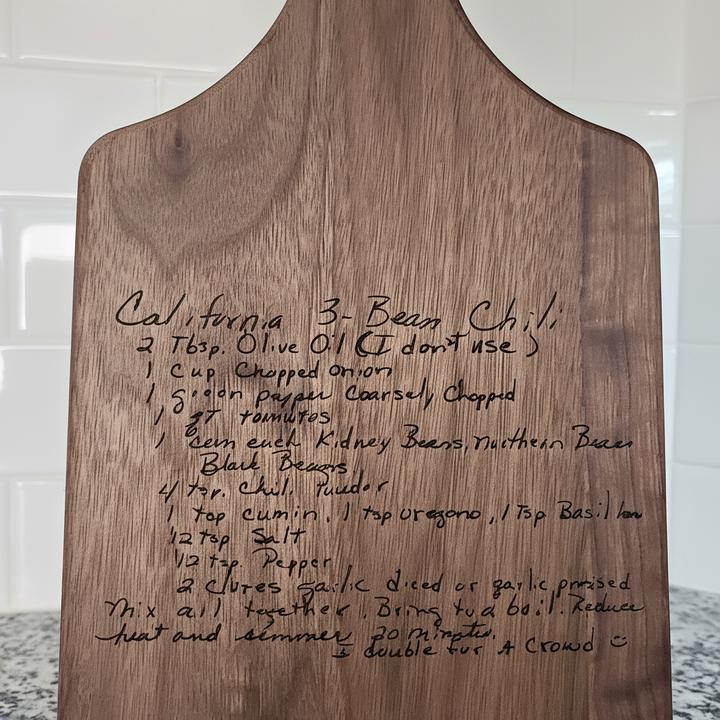 California 3-Bean Chili
2 Tbsp. Olive Oil (I don't use)
1 Cup Chopped onion
1 pepper Coarsely Chopped
1 qT tomutos
1 cem each Kidney Beans, Northern Bean
Black Beans
4 tsp. Chili
1 tsp cumin, 1 tsp oregono, 1 Tsp Basil
1/2 tsp Salt
1/2 tsp. Pepper
2 cloves garlic diced or garlic pressed
Mix all together. Bring to a boil. Reduce
heat and simmer 20 minutes.
I double for A Crowd ☺